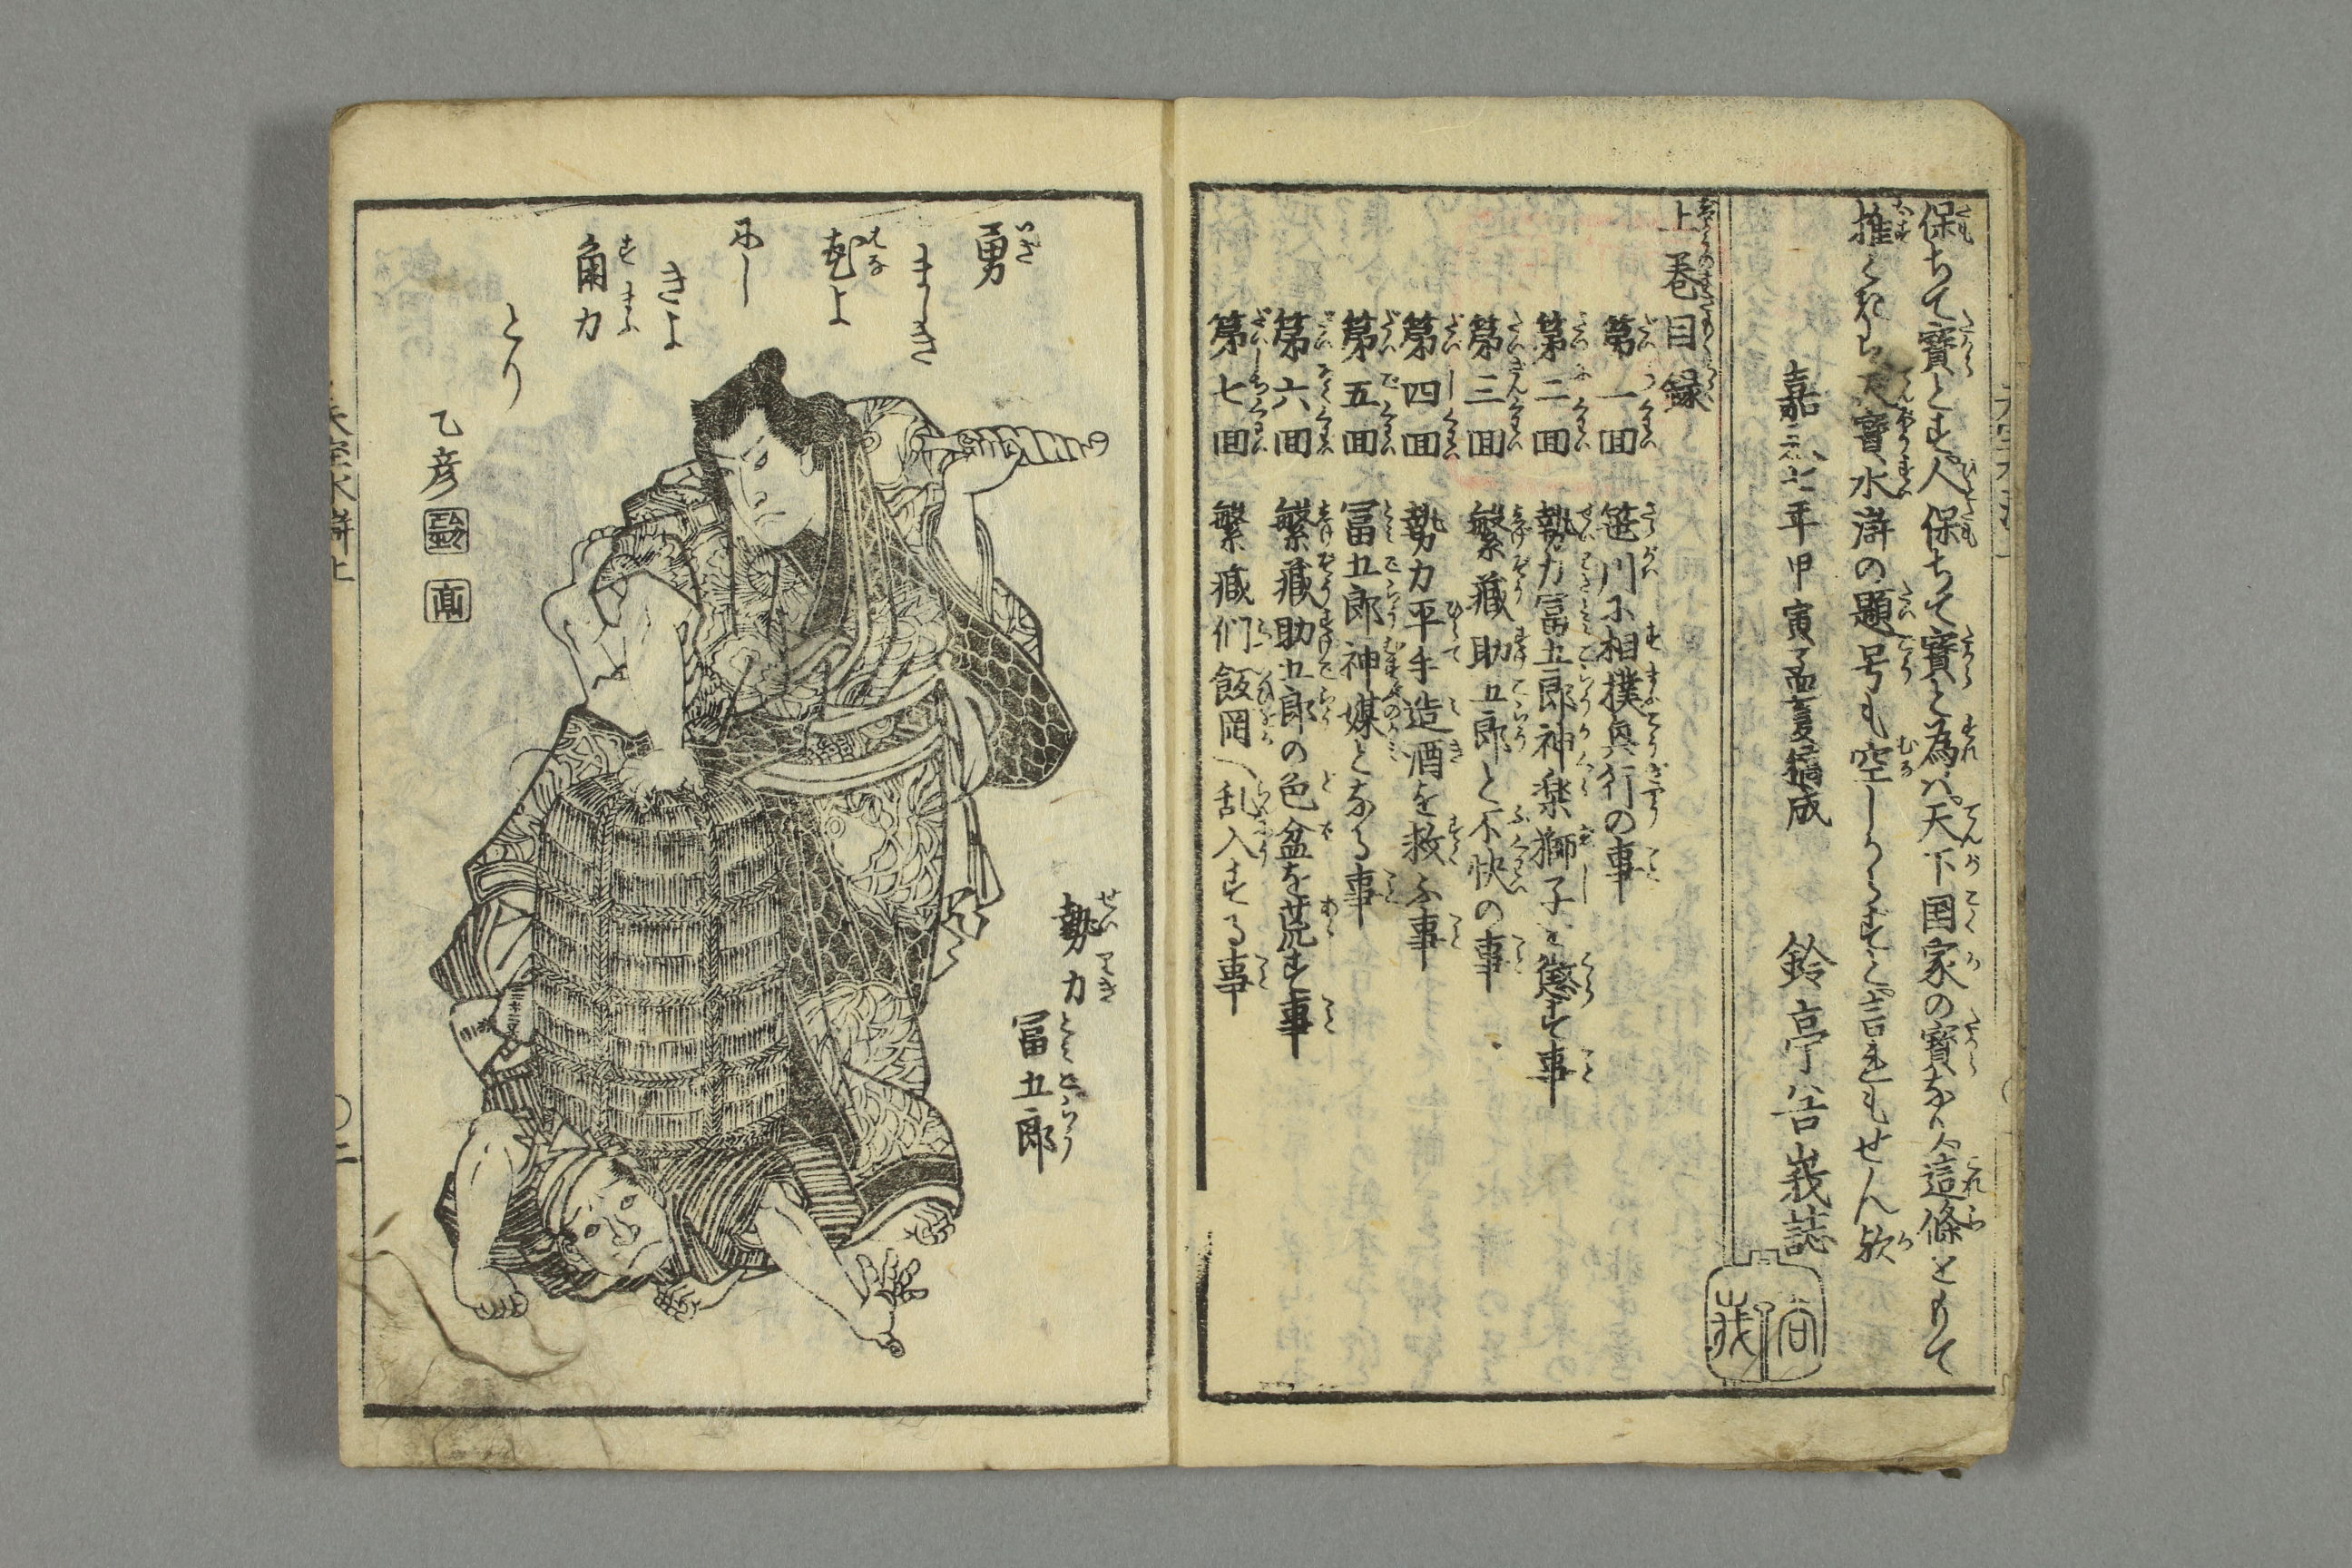 保ちて寳とす人保ちて寳と為バ天下国家の寳なり今這條をもて
推ときハ天寳水滸の題号も空しからずと言もせん歟
嘉永七年甲寅孟夏稿成
鈴亭谷峩誌
谷峩
上巻目録
第一回 笹川に相撲興行の事
第二回 勢力冨五郎神楽獅子を懲す事
第三回 繁蔵助五郎と不快の事
第四回 勢力平手造酒を救ふ事
第五回 冨五郎神媒となる事
第六回 繁蔵助五郎の色盆を荒す事
第七回 繁蔵們飯岡へ乱入する事
勇
ましき
花よ
にし
きよ
角力
とり
乙彦
勢力
冨五郎